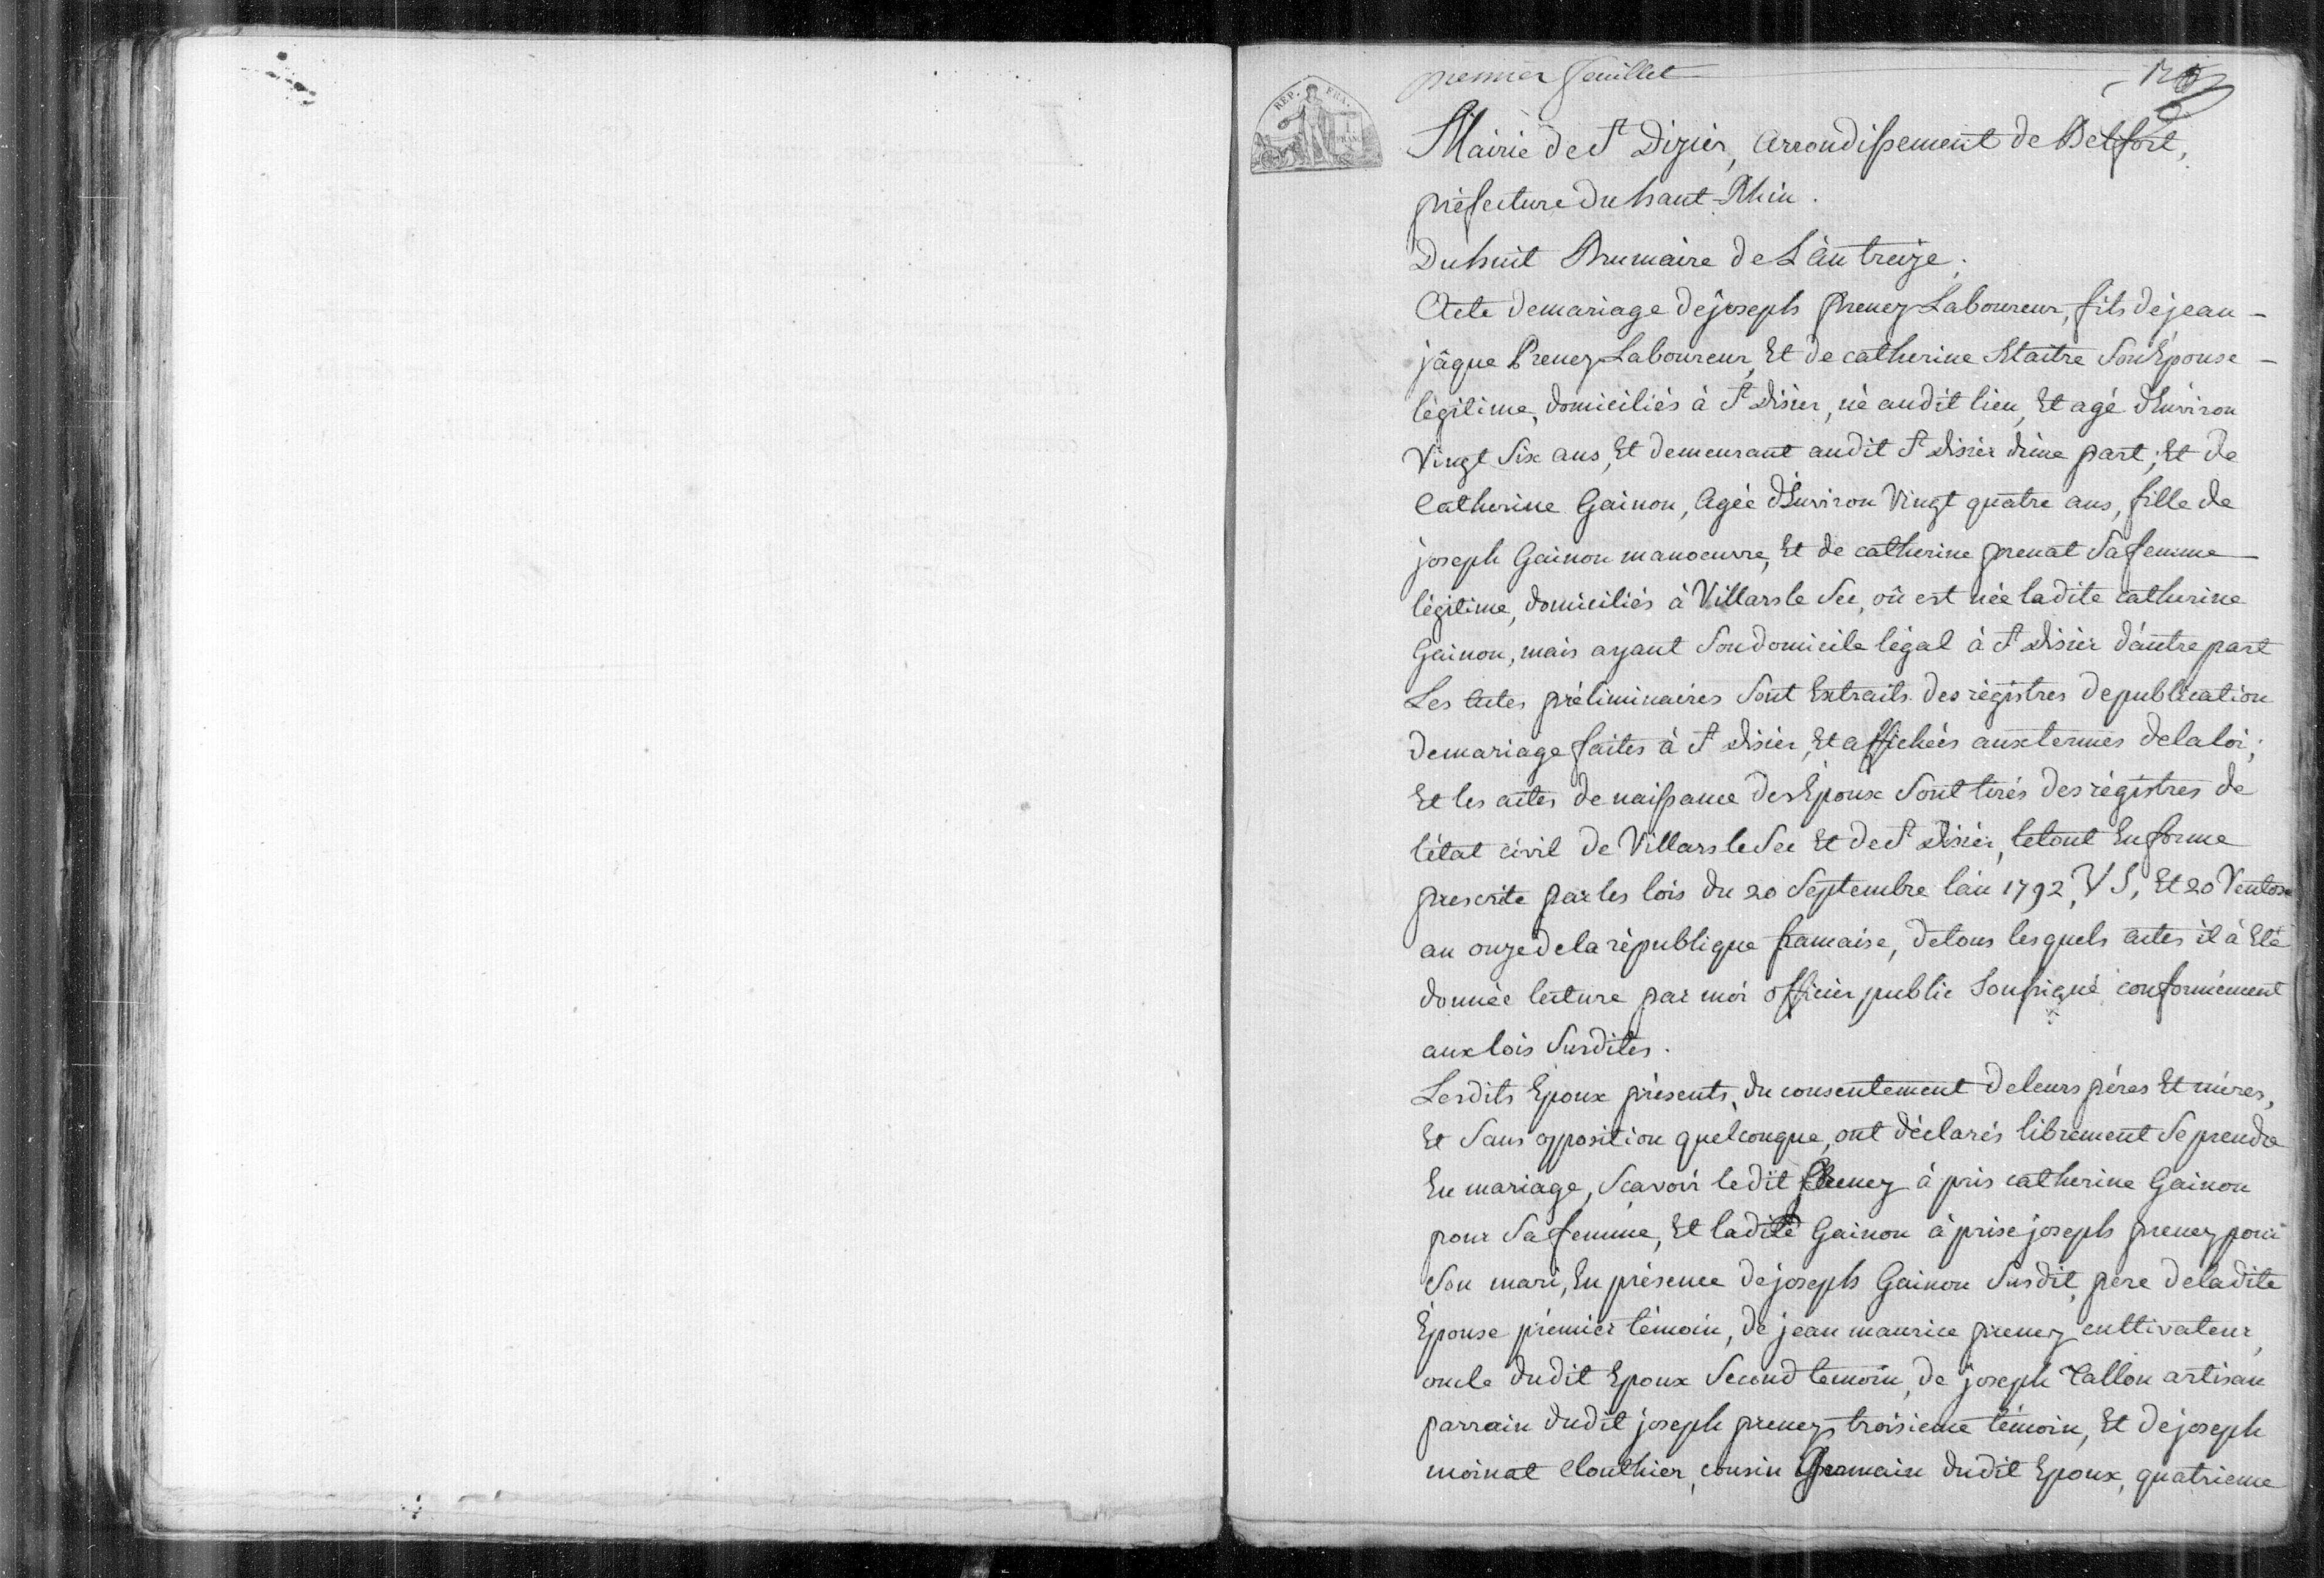 premier feuillet
REP. FRA.
Mairie de St Dizier, arrondissement de Belfort,
préfecture du haut-Rhin.
Du huit Brumaire de L'an treize.
Acte de mariage de joseph Prenez Laboureur, fils de jean-
jâque Prenez Laboureur, Et de catherine Maitre Son Epouse-
légitime, domiciliés à St Disier, né audit lieu, Et agé d'Environ
Vingt Six ans, Et demeurant audit St Disier d'une part; Et de
Catherine Gainon, Agée d'Environ Vingt quatre ans, fille de
joseph Gainon manoeuvre, Et de catherine prenat Sa femme
légitime, domiciliés à Villars le Sec, où est née ladite catherine
Gainon, mais ayant Son domicile légal à St Disier d'autre part
Les Actes préliminaires Sont Extraits des régistres de publication
de mariage faites à St Disier, Et affichées aux termes de la loi;
Et les actes de naissance des Epoux Sont tirés des régistres de
l'état civil de Villars le Sec Et de St Disier, le tout En forme
prescrite par les lois du 20 Septembre l'an 1792, V S, Et 20 Ventose
an onze de la république francaise, de tous les quels actes il à Eté
donnée lecture par moi officier public Soussigné conformément
aux lois Susdites.
Lesdits Epoux présents, du consentement de leurs péres Et méres,
Et Sans opposition quelconque, ont déclarés librement Se prendre
En mariage, Scavoir ledit Prenez à pris catherine Gainon
pour Sa femme, Et ladite Gainon à prise joseph prenez pour
Son mari, En présence de joseph Gainon Susdit, pere de ladite
Epouse prémier témoin, de jean maurice prenez cultivateur,
oncle dudit Epoux Second temoin, de joseph Tallon artisan
parrain dudit joseph prenez troisieme témoin, Et de joseph
moinat Clouthier, cousin Germain dudit Epoux, quatrieme